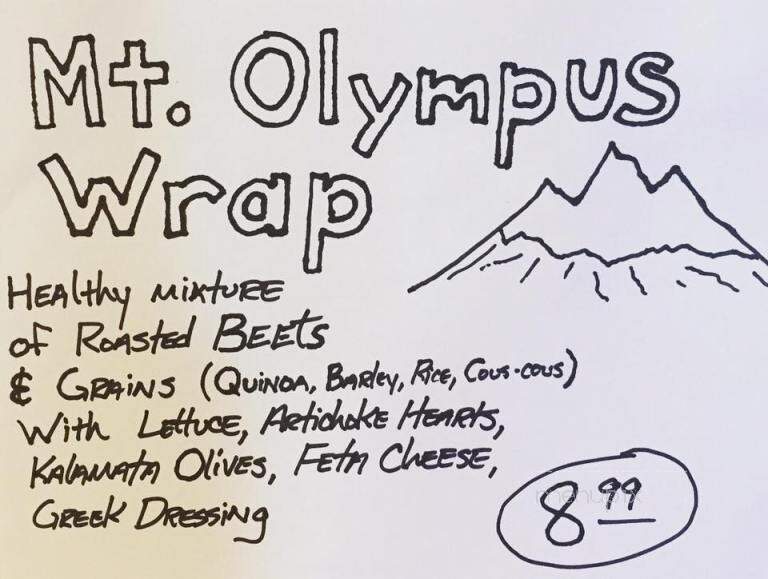 Mt. Olympus
Wrap
Healthy mixture
of Roasted Beets
& Grains (Quinoa, Barley, Rice, Cous-cous)
With Lettuce, Artichoke Hearts,
Kalamata Olives, Feta Cheese,
Greek Dressing
8.99
menupix